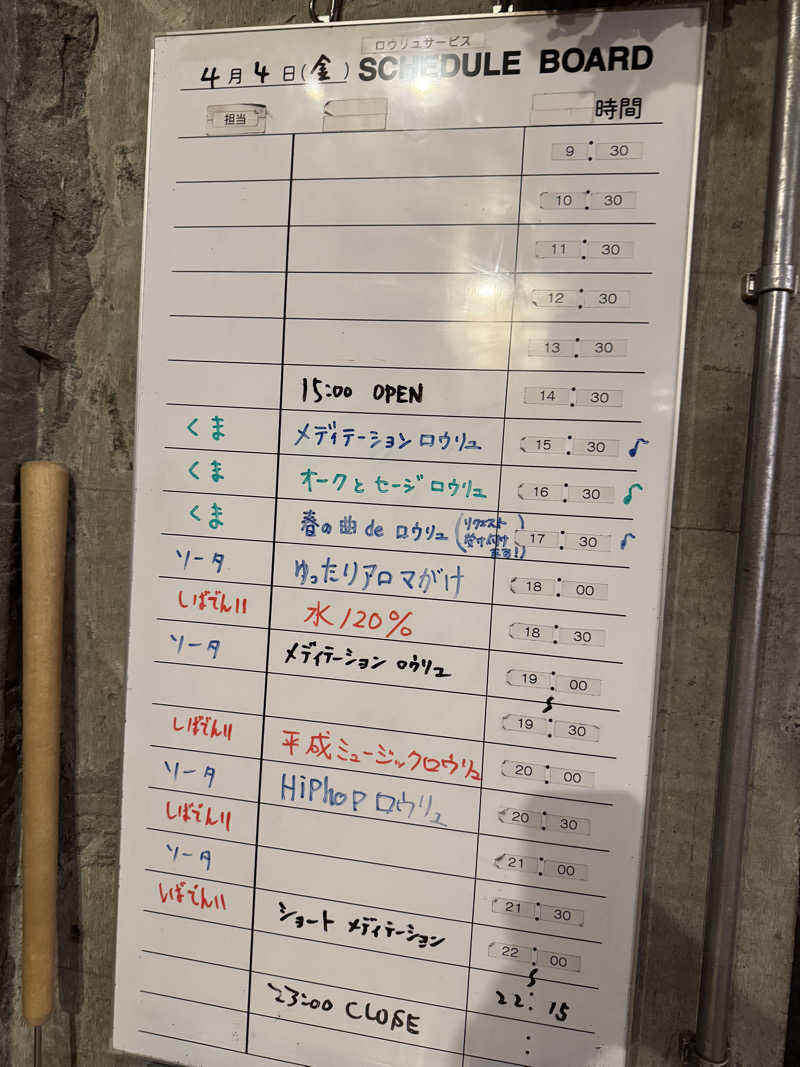 ロウリュサービス
4月4日(金) SCHEDULE BOARD
担当 時間
9:30
10:30
11:30
12:30
13:30
15:00 OPEN 14:30
くま メディテーションロウリュ 15:30
くま オークとセージロウリュ 16:30
くま 春の曲de ロウリュ(リクエスト受け付けまる!) 17:30
ソータ ゆったりアロマがけ 18:00
しばでん!! 水120% 18:30
ソータ メディテーション ロウリュ 19:00
19:30
しばでん!! 平成ミュージックロウリュ 20:00
ソータ HiPhoP ロウリュ 20:30
しばでん!! 21:00
ソータ 21:30
しばでん!! ショート メディテーション 22:00
22:15
23:00 CLOSE :